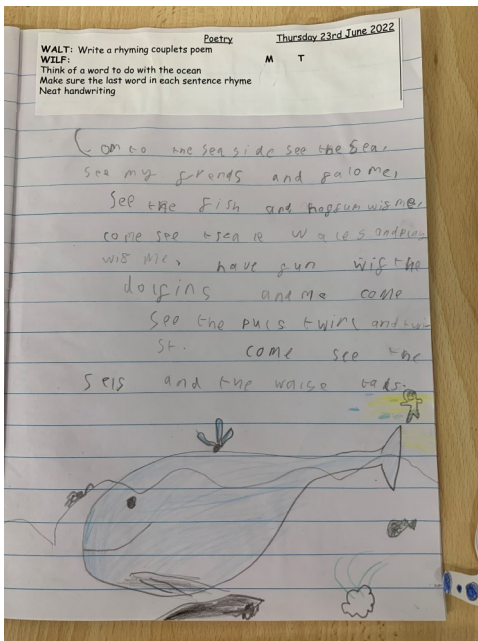 Poetry
Thursday 23rd June 2022
WALT: Write a rhyming couplets poem
WILF:
M T
Think of a word to do with the ocean
Make sure the last word in each sentence rhyme
Neat handwriting
Com to the seaside see the sea.
see my frends and falome,
see the fish and haffun wis me,
come see wales and play
wis me, have fun wif the
dolfins and me come
see the twirl and twi
st. come see the
sels and the